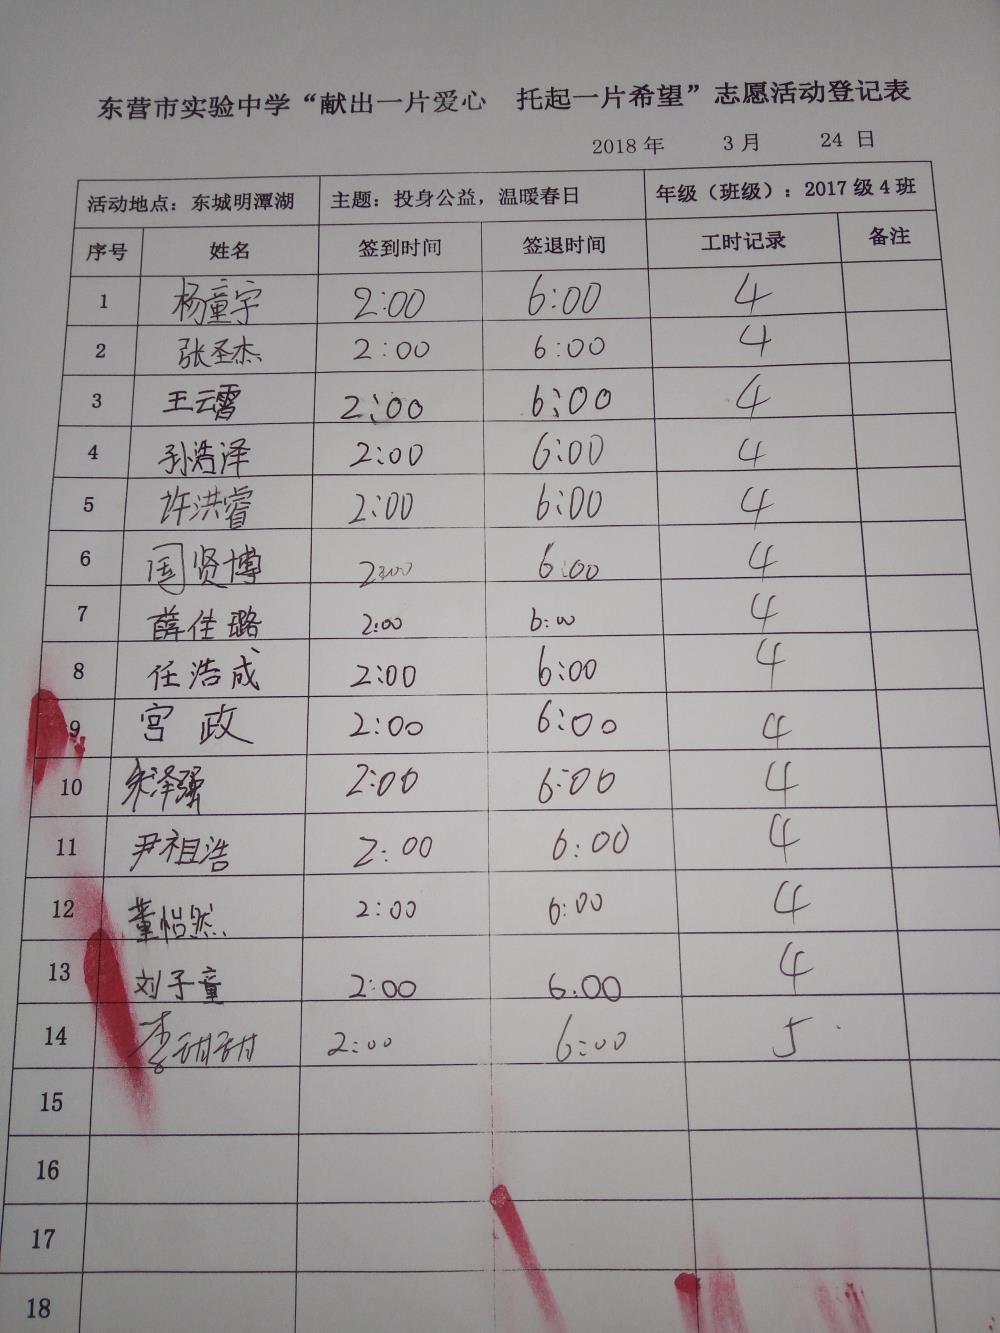 东营市实验中学“献出一片爱心 托起一片希望”志愿活动登记表
2018 年 3 月 24 日
活动地点：东城明潭湖 主题：投身公益，温暖春日 年级（班级）：2017 级 4 班
序号 姓名 签到时间 签退时间 工时记录 备注
1 杨童宇 2:00 6:00 4
2 张圣杰 2:00 6:00 4
3 王云霄 2:00 6:00 4
4 孙浩泽 2:00 6:00 4
5 许洪睿 2:00 6:00 4
6 国贤博 2:00 6:00 4
7 薛佳璐 2:00 6:00 4
8 任浩成 2:00 6:00 4
9 宫政 2:00 6:00 4
10 宋泽强 2:00 6:00 4
11 尹祖浩 2:00 6:00 4
12 董怡然 2:00 6:00 4
13 刘子童 2:00 6:00 4
14 李甜甜 2:00 6:00 5
15
16
17
18